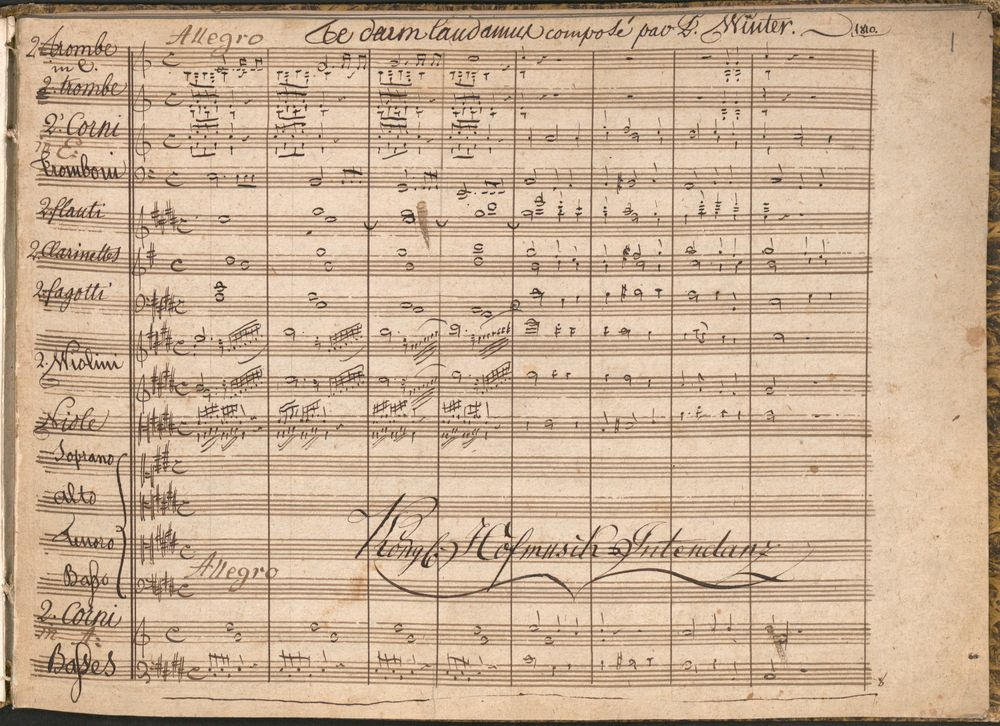 Allegro Te deum laudamus composé par P. Winter. 1810.
1
2 trombe
in C.
2. trombe
2. Corni
in E
tromboni
2 flauti
2 Clarinettes
2 fagotti
2. Wiolini
Viole
Soprano
alto
Tenoro
Königl: Hofmusik Intendanz
Basso
Allegro
2. Corni
in A
Basses
8